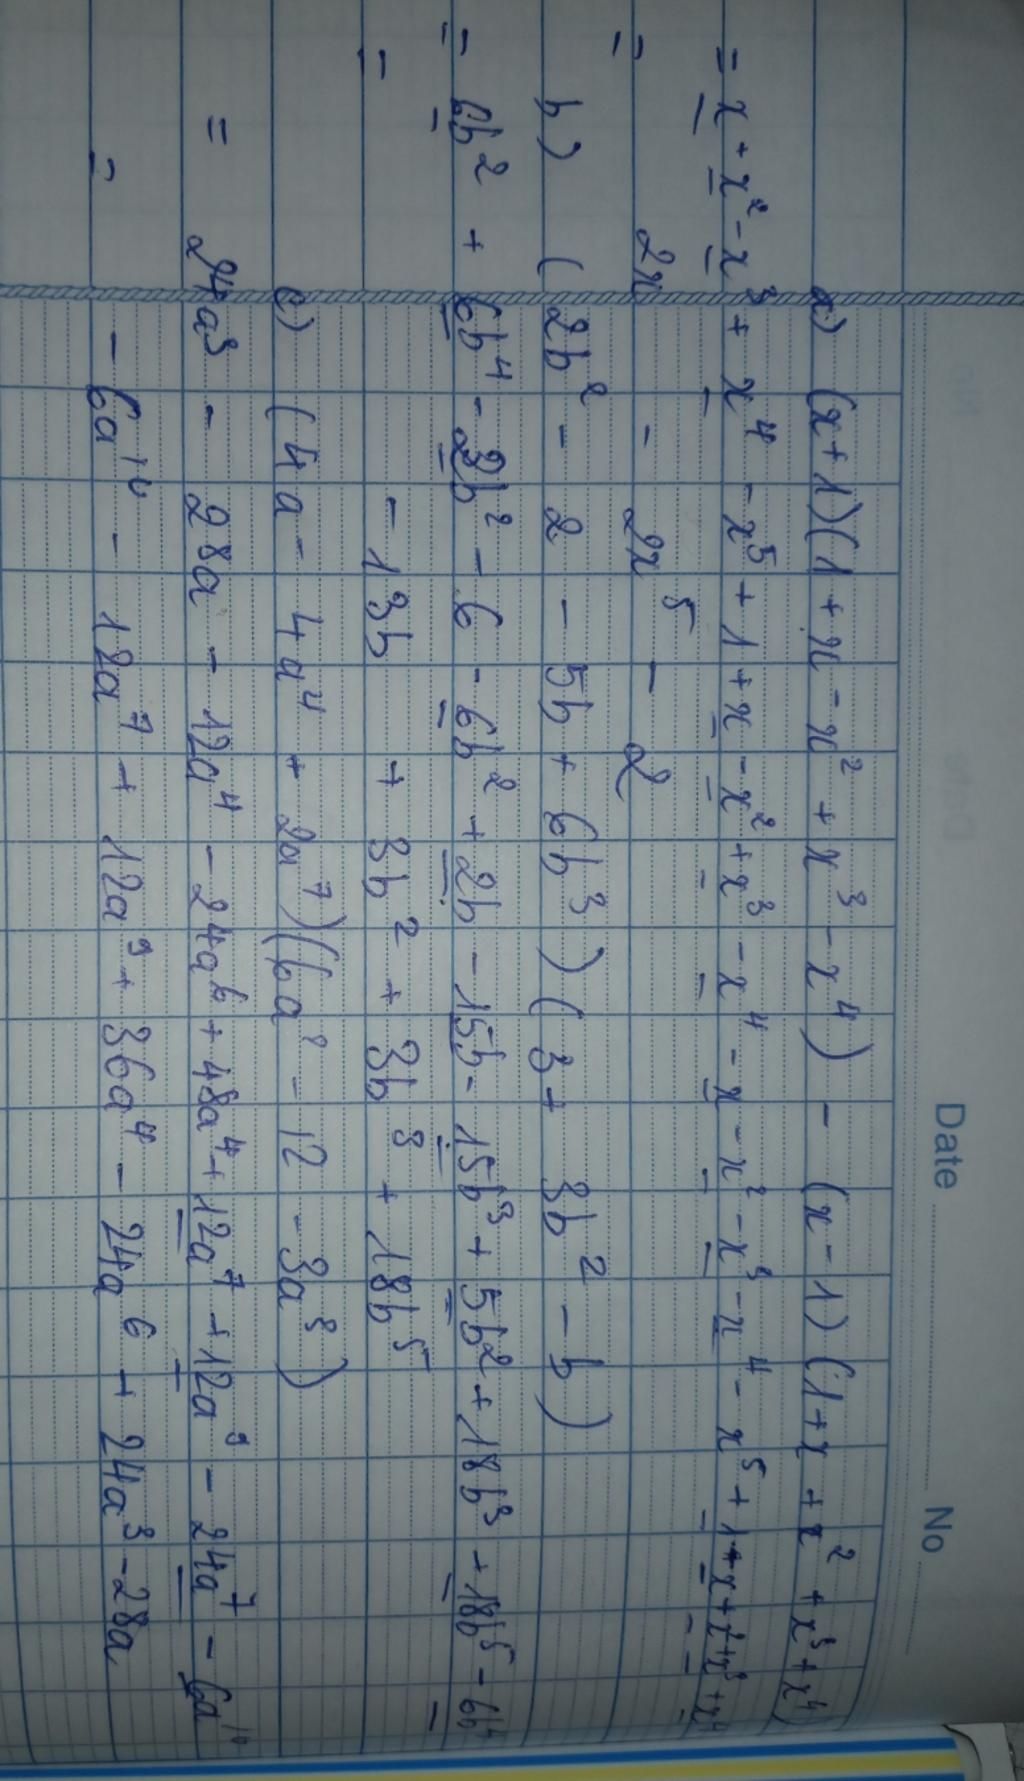 Date No
a) (x+1)(1+x-x²+x³-x⁴) - (x-1)(1+x+x²+x³+x⁴)
= x+x²-x³+x⁴-x⁵+1+x-x²+x³-x⁴-x-x²-x³-x⁴-x⁵+1+x+x²+x³+x⁴
= 2x - 2x⁵ - 2
b) (2b² - 2 - 5b + 6b³)(3 + 3b² - b)
= 6b² + 6b⁴ - 2b² - 6 - 6b² + 2b - 15b - 15b³ + 5b² + 18b³ + 18b⁵ - 6b⁴
= - 13b + 3b² + 3b³ + 18b⁵
c) (4a - 4a⁴ + 2a⁷)(6a² - 12 - 3a³)
= 24a³ - 28a - 12a⁴ - 24a⁶ + 48a⁴ + 12a⁷ + 12a⁹ - 24a⁷ - 6a¹⁰
= - 6a¹⁰ - 12a⁷ + 12a⁹ + 36a⁴ - 24a⁶ + 24a³ - 28a